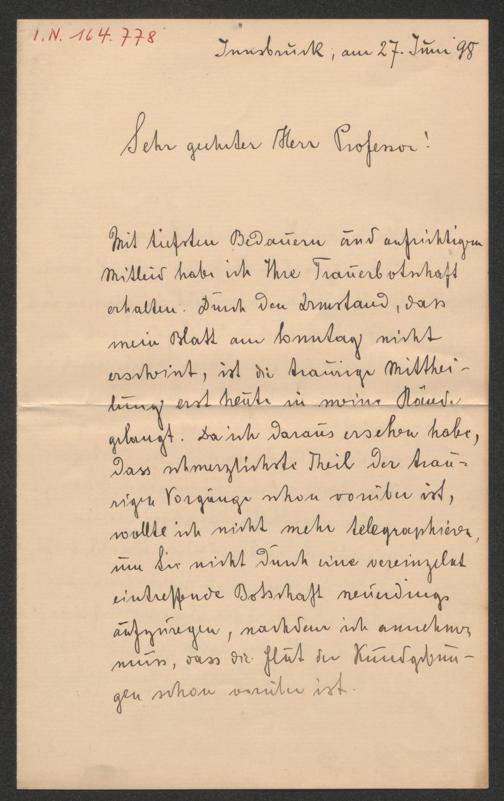 I.N. 164.778
Innsbruck, am 27. Juni 98
Sehr geehrter Herr Professor!
Mit tiefsten Bedauern und aufrichtigem
Mitleid habe ich Ihre Trauerbotschaft
erhalten. Durch den Umstand, dass
mein Blatt am Sonntag nicht
erscheint, ist die traurige Mitthei-
lung erst heute in meine Hände
gelangt. Da ich daraus ersehen habe,
dass schmerzlichste Theil der trau-
rigen Vorgänge schon vorüber ist,
wollte ich nicht mehr telegraphieren,
um Sie nicht durch eine vereinzelnt
eintreffende Botschaft neuerdings
aufzuregen, nachdem ich annehmen
muss, dass die Flut der Kundgebun-
gen schon vorüber ist.